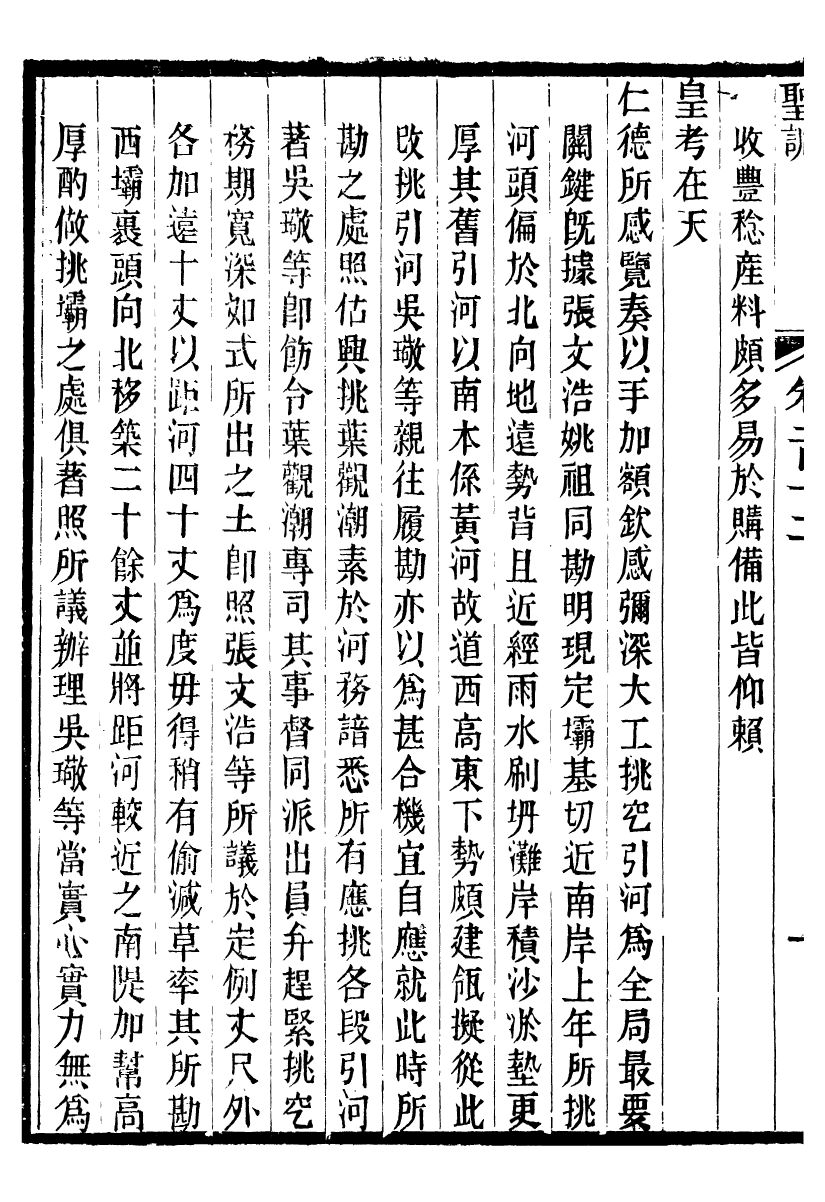 聖訓 卷二百十二 一
收豐稔產料頗多易於購備此皆仰賴
皇考在天
仁德所感覽奏以手加額欽感彌深大工挑空引河爲全局最要
關鍵旣據張文浩姚祖同勘明現定壩基切近南岸上年所挑
河頭偏於北向地遠勢背且近經雨水刷坍灘岸積沙淤墊更
厚其舊引河以南本係黃河故道西高東下勢頗建瓴擬從此
改挑引河吳璥等親往履勘亦以爲甚合機宜自應就此時所
勘之處照估興挑葉觀潮素於河務諳悉所有應挑各段引河
著吳璥等卽飭令葉觀潮專司其事督同派出員弁趕緊挑空
務期寬深如式所出之土卽照張文浩等所議於定例丈尺外
各加遠十丈以距河四十丈爲度毋得稍有偷減草率其所勘
西壩裹頭向北移築二十餘丈並將距河較近之南隄加幫高
厚酌做挑壩之處俱著照所議辦理吳璥等當實心實力無爲